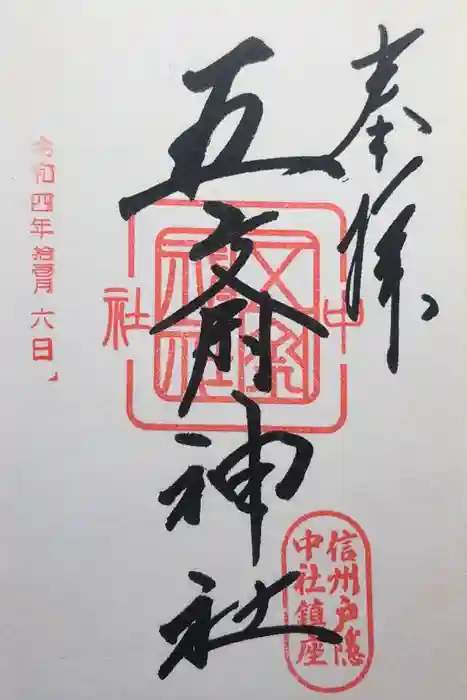 奉拝
中社
五斎神社
信州戸隠
中社鎮座
令和四年拾壹月六日